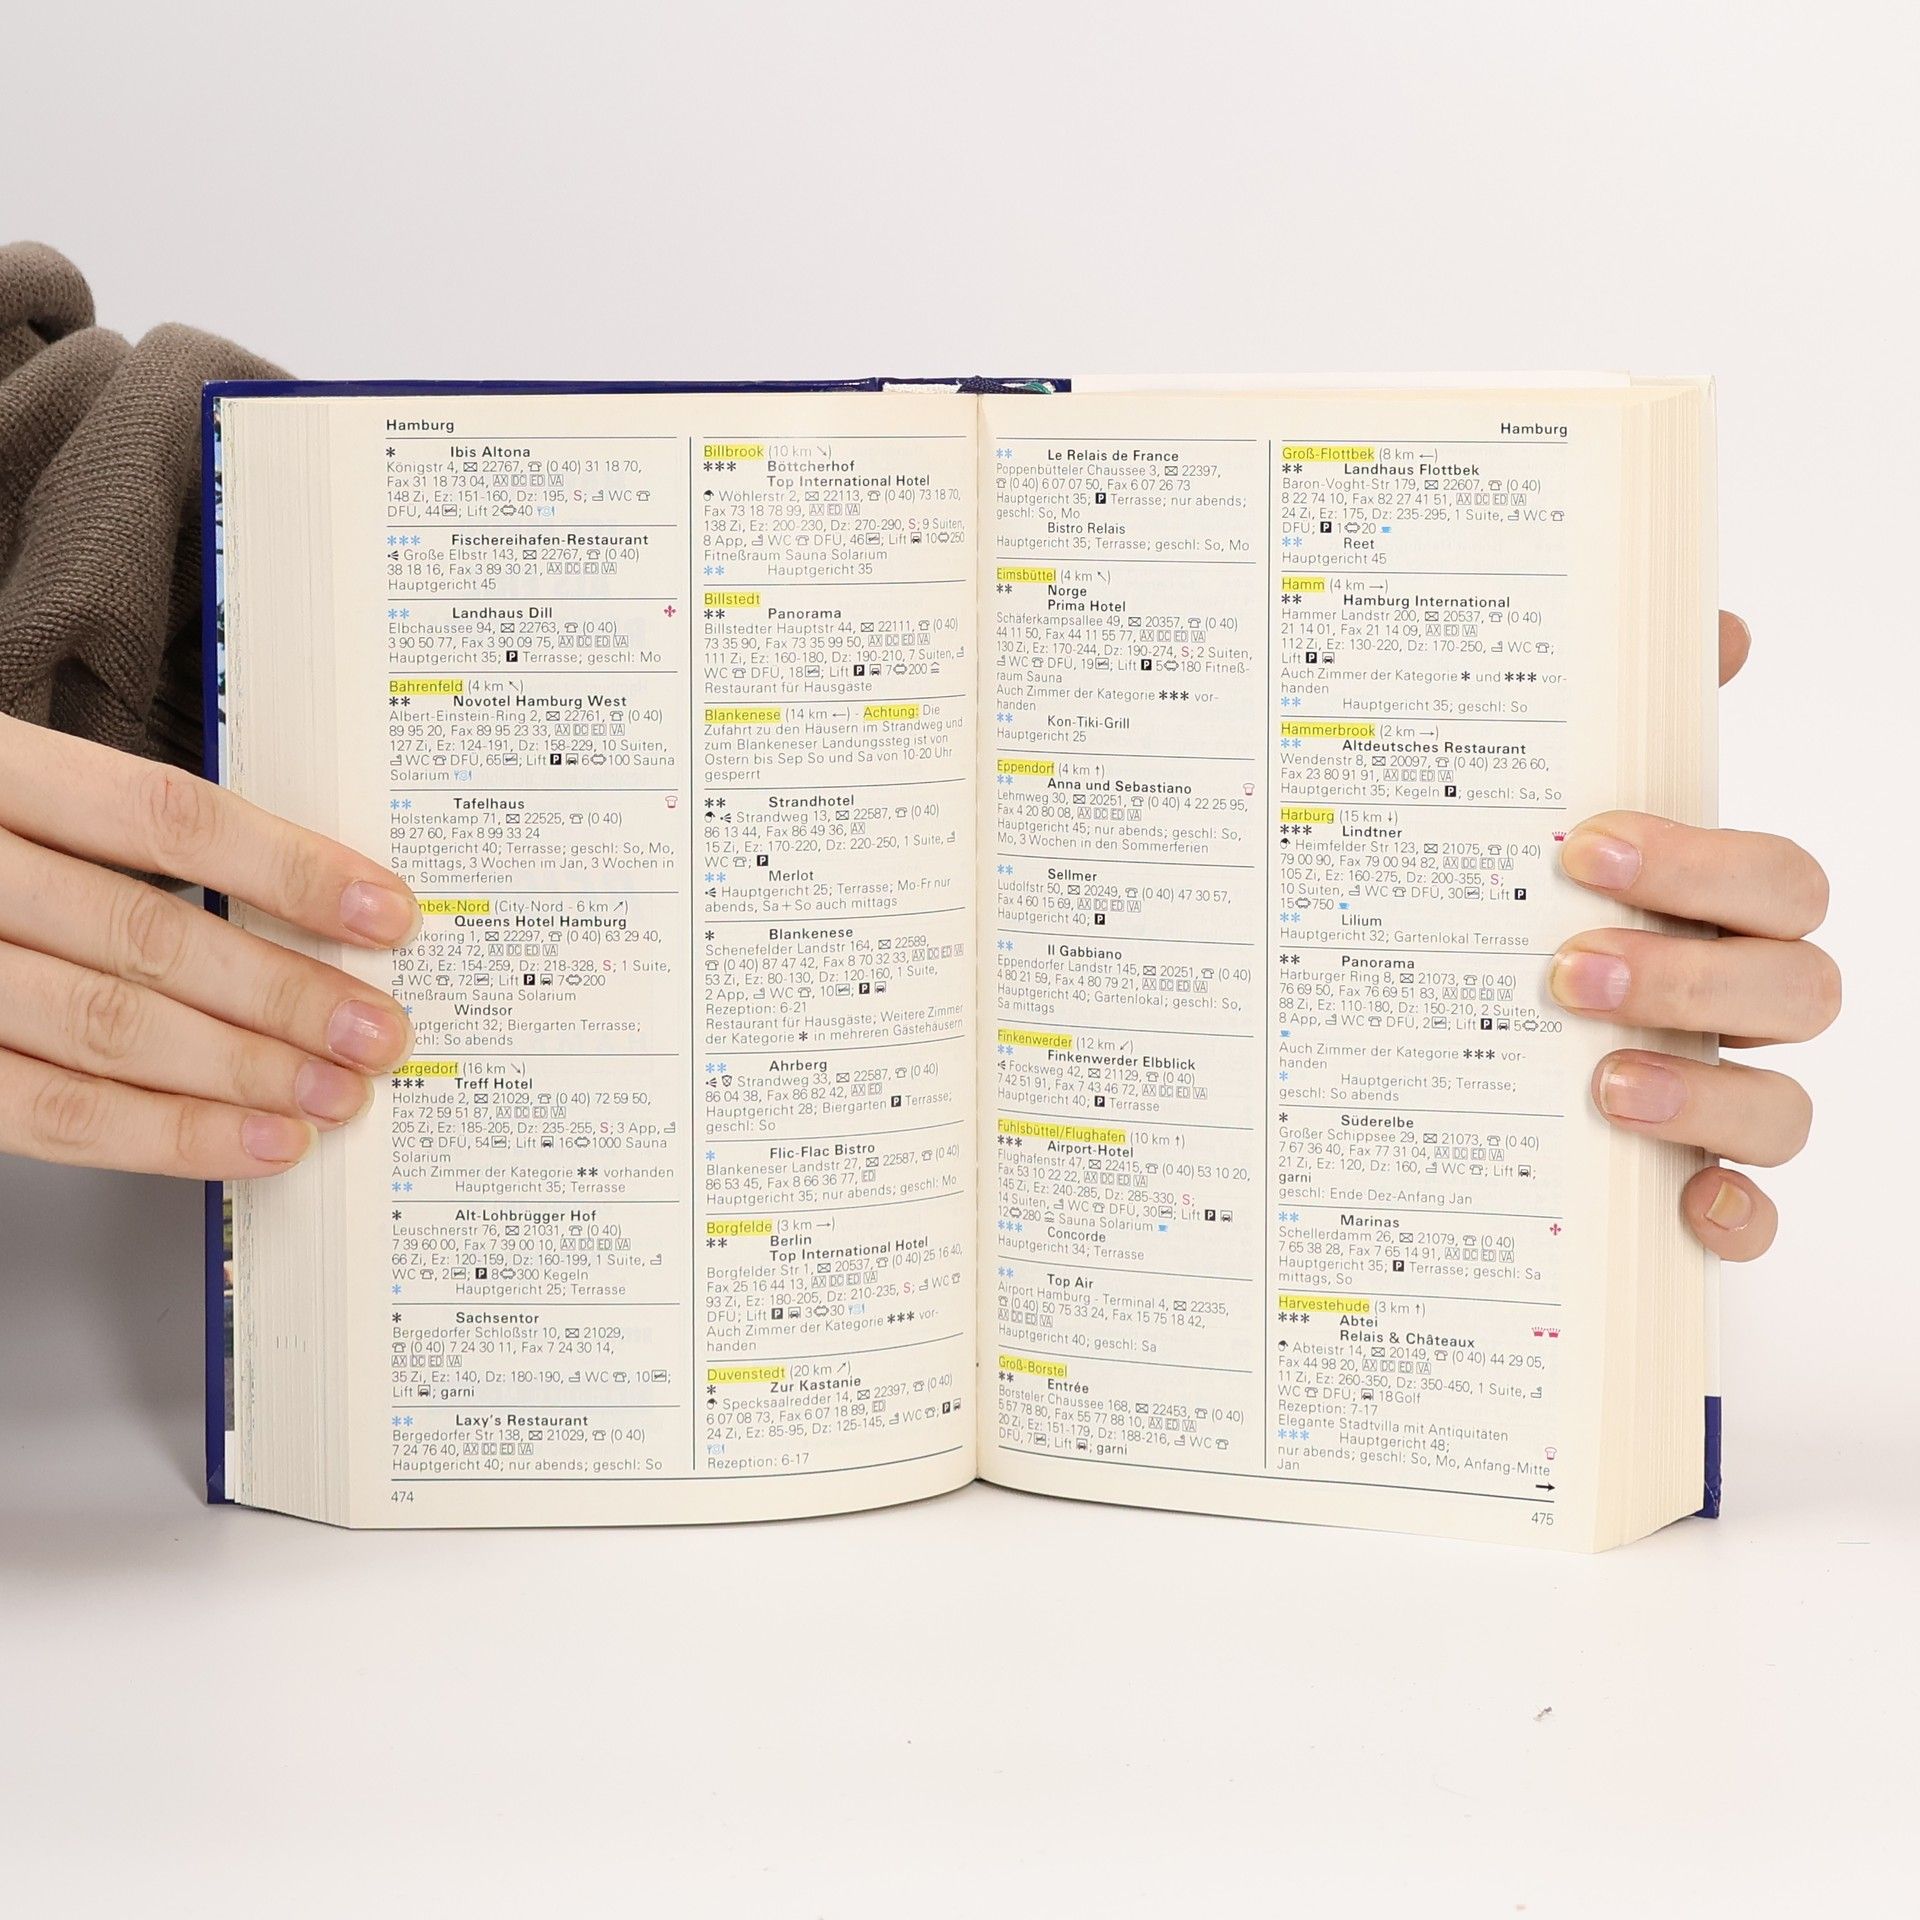 Hamburg
* Ibis Altona
Königstr 4, ✉ 22767, ☎ (0 40) 31 18 70,
Fax 31 18 73 04, AX DC ED VA
148 Zi, Ez: 151-160, Dz: 195, S; WC ☎
DFÜ, 44; Lift 2 40
*** Fischereihafen-Restaurant
Große Elbstr 143, ✉ 22767, ☎ (0 40)
38 18 16, Fax 3 89 30 21, AX DC ED VA
Hauptgericht 45
** Landhaus Dill
Elbchaussee 94, ✉ 22763, ☎ (0 40)
3 90 50 77, Fax 3 90 09 75, AX DC ED VA
Hauptgericht 35; P Terrasse; geschl: Mo
Bahrenfeld (4 km ↖)
** Novotel Hamburg West
Albert-Einstein-Ring 2, ✉ 22761, ☎ (0 40)
89 95 20, Fax 89 95 23 33, AX DC ED VA
127 Zi, Ez: 124-191, Dz: 158-229, 10 Suiten,
WC ☎ DFÜ, 65; Lift P 6 100 Sauna
Solarium
** Tafelhaus
Holstenkamp 71, ✉ 22525, ☎ (0 40)
89 27 60, Fax 8 99 33 24
Hauptgericht 40; Terrasse; geschl: So, Mo,
Sa mittags, 3 Wochen im Jan, 3 Wochen in
en Sommerferien
mbek-Nord (City-Nord - 6 km ↗)
Queens Hotel Hamburg
xikoring 1, ✉ 22297, ☎ (0 40) 63 29 40,
Fax 6 32 24 72, AX DC ED VA
180 Zi, Ez: 154-259, Dz: 218-328, S; 1 Suite,
WC ☎, 72; Lift P 7 200
Fitneßraum Sauna Solarium
* Windsor
uptgericht 32; Biergarten Terrasse;
schl: So abends
Bergedorf (16 km ↘)
*** Treff Hotel
Holzhude 2, ✉ 21029, ☎ (0 40) 72 59 50,
Fax 72 59 51 87, AX DC ED VA
205 Zi, Ez: 185-205, Dz: 235-255, S; 3 App,
WC ☎ DFÜ, 54; Lift 16 1000 Sauna
Solarium
Auch Zimmer der Kategorie ** vorhanden
** Hauptgericht 35; Terrasse
* Alt-Lohbrügger Hof
Leuschnerstr 76, ✉ 21031, ☎ (0 40)
7 39 60 00, Fax 7 39 00 10, AX DC ED VA
66 Zi, Ez: 120-159, Dz: 160-199, 1 Suite,
WC ☎, 2; P 8 300 Kegeln
* Hauptgericht 25; Terrasse
* Sachsentor
Bergedorfer Schloßstr 10, ✉ 21029,
☎ (0 40) 7 24 30 11, Fax 7 24 30 14,
AX DC ED VA
35 Zi, Ez: 140, Dz: 180-190, WC ☎, 10;
Lift; garni
** Laxy's Restaurant
Bergedorfer Str 138, ✉ 21029, ☎ (0 40)
7 24 76 40, AX DC ED VA
Hauptgericht 40; nur abends; geschl: So
474
Billbrook (10 km ↘)
*** Böttcherhof
Top International Hotel
Wöhlerstr 2, ✉ 22113, ☎ (0 40) 73 18 70,
Fax 73 18 78 99, AX ED VA
138 Zi, Ez: 200-230, Dz: 270-290, S; 9 Suiten,
8 App, WC ☎ DFÜ, 46; Lift 10 250
Fitneßraum Sauna Solarium
** Hauptgericht 35
Billstedt
** Panorama
Billstedter Hauptstr 44, ✉ 22111, ☎ (0 40)
73 35 90, Fax 73 35 99 50, AX DC ED VA
111 Zi, Ez: 160-180, Dz: 190-210, 7 Suiten,
WC ☎ DFÜ, 18; Lift P 7 200
Restaurant für Hausgäste
Blankenese (14 km ←) - Achtung: Die
Zufahrt zu den Häusern im Strandweg und
zum Blankeneser Landungssteg ist von
Ostern bis Sep So und Sa von 10-20 Uhr
gesperrt
** Strandhotel
Strandweg 13, ✉ 22587, ☎ (0 40)
86 13 44, Fax 86 49 36, AX
15 Zi, Ez: 170-220, Dz: 220-250, 1 Suite,
WC ☎; P
** Merlot
Hauptgericht 25; Terrasse; Mo-Fr nur
abends, Sa + So auch mittags
* Blankenese
Schenefelder Landstr 164, ✉ 22589,
☎ (0 40) 87 47 42, Fax 8 70 32 33, AX DC ED VA
53 Zi, Ez: 80-130, Dz: 120-160, 1 Suite,
2 App, WC ☎, 10; P
Rezeption: 6-21
Restaurant für Hausgäste; Weitere Zimmer
der Kategorie * in mehreren Gästehäusern
** Ahrberg
Strandweg 33, ✉ 22587, ☎ (0 40)
86 04 38, Fax 86 82 42, AX ED
Hauptgericht 28; Biergarten P Terrasse;
geschl: So
* Flic-Flac Bistro
Blankeneser Landstr 27, ✉ 22587, ☎ (0 40)
86 53 45, Fax 8 66 36 77, ED
Hauptgericht 35; nur abends; geschl: Mo
Borgfelde (3 km →)
** Berlin
Top International Hotel
Borgfelder Str 1, ✉ 20537, ☎ (0 40) 25 16 40,
Fax 25 16 44 13, AX DC ED VA
93 Zi, Ez: 180-205, Dz: 210-235, S; WC ☎
DFÜ; Lift P 3 30
Auch Zimmer der Kategorie *** vor-
handen
Duvenstedt (20 km ↗)
* Zur Kastanie
Specksaalredder 14, ✉ 22397, ☎ (0 40)
6 07 08 73, Fax 6 07 18 89, ED
24 Zi, Ez: 85-95, Dz: 125-145, WC ☎; P
Rezeption: 6-17
Hamburg
** Le Relais de France
Poppenbütteler Chaussee 3, ✉ 22397,
☎ (0 40) 6 07 07 50, Fax 6 07 26 73
Hauptgericht 35; P Terrasse; nur abends;
geschl: So, Mo
Bistro Relais
Hauptgericht 35; Terrasse; geschl: So, Mo
Eimsbüttel (4 km ↖)
** Norge
Prima Hotel
Schäferkampsallee 49, ✉ 20357, ☎ (0 40)
44 11 50, Fax 44 11 55 77, AX DC ED VA
130 Zi, Ez: 170-244, Dz: 190-274, S; 2 Suiten,
WC ☎ DFÜ, 19; Lift P 5 180 Fitneß-
raum Sauna
Auch Zimmer der Kategorie *** vor-
handen
** Kon-Tiki-Grill
Hauptgericht 25
Eppendorf (4 km ↑)
** Anna und Sebastiano
Lehmweg 30, ✉ 20251, ☎ (0 40) 4 22 25 95,
Fax 4 20 80 08, AX DC ED VA
Hauptgericht 45; nur abends; geschl: So,
Mo, 3 Wochen in den Sommerferien
** Sellmer
Ludolfstr 50, ✉ 20249, ☎ (0 40) 47 30 57,
Fax 4 60 15 69, AX DC ED VA
Hauptgericht 40; P
** Il Gabbiano
Eppendorfer Landstr 145, ✉ 20251, ☎ (0 40)
4 80 21 59, Fax 4 80 79 21, AX DC ED VA
Hauptgericht 40; Gartenlokal; geschl: So,
Sa mittags
Finkenwerder (12 km ↙)
** Finkenwerder Elbblick
Focksweg 42, ✉ 21129, ☎ (0 40)
7 42 51 91, Fax 7 43 46 72, AX DC ED VA
Hauptgericht 40; P Terrasse
Fuhlsbüttel/Flughafen (10 km ↑)
*** Airport-Hotel
Flughafenstr 47, ✉ 22415, ☎ (0 40) 53 10 20,
Fax 53 10 22 22, AX DC ED VA
145 Zi, Ez: 240-285, Dz: 285-330, S;
14 Suiten, WC ☎ DFÜ, 30; Lift P
12 280 Sauna Solarium
*** Concorde
Hauptgericht 34; Terrasse
** Top Air
Airport Hamburg - Terminal 4, ✉ 22335,
☎ (0 40) 50 75 33 24, Fax 15 75 18 42,
AX DC ED VA
Hauptgericht 40; geschl: Sa
Groß-Borstel
** Entrée
Borsteler Chaussee 168, ✉ 22453, ☎ (0 40)
5 57 78 80, Fax 55 77 88 10, AX ED VA
20 Zi, Ez: 151-179, Dz: 188-216, WC ☎
DFÜ, 7; Lift; garni
Groß-Flottbek (8 km ←)
** Landhaus Flottbek
Baron-Voght-Str 179, ✉ 22607, ☎ (0 40)
8 22 74 10, Fax 82 27 41 51, AX DC ED VA
24 Zi, Ez: 175, Dz: 235-295, 1 Suite, WC ☎
DFÜ; P 1 20
** Reet
Hauptgericht 45
Hamm (4 km →)
** Hamburg International
Hammer Landstr 200, ✉ 20537, ☎ (0 40)
21 14 01, Fax 21 14 09, AX ED VA
112 Zi, Ez: 130-220, Dz: 170-250, WC ☎;
Lift P
Auch Zimmer der Kategorie * und *** vor-
handen
** Hauptgericht 35; geschl: So
Hammerbrook (2 km →)
** Altdeutsches Restaurant
Wendenstr 8, ✉ 20097, ☎ (0 40) 23 26 60,
Fax 23 80 91 91, AX DC ED VA
Hauptgericht 35; Kegeln P; geschl: Sa, So
Harburg (15 km ↓)
*** Lindtner
Heimfelder Str 123, ✉ 21075, ☎ (0 40)
79 00 90, Fax 79 00 94 82, AX DC ED VA
105 Zi, Ez: 160-275, Dz: 200-355, S;
10 Suiten, WC ☎ DFÜ, 30; Lift P
15 750
** Lilium
Hauptgericht 32; Gartenlokal Terrasse
** Panorama
Harburger Ring 8, ✉ 21073, ☎ (0 40)
76 69 50, Fax 76 69 51 83, AX DC ED VA
88 Zi, Ez: 110-180, Dz: 150-210, 2 Suiten,
8 App, WC ☎ DFÜ, 2; Lift P 5 200
Auch Zimmer der Kategorie *** vor-
handen
* Hauptgericht 35; Terrasse;
geschl: So abends
* Süderelbe
Großer Schippsee 29, ✉ 21073, ☎ (0 40)
7 67 36 40, Fax 77 31 04, AX DC ED VA
21 Zi, Ez: 120, Dz: 160, WC ☎; Lift;
garni
geschl: Ende Dez-Anfang Jan
** Marinas
Schellerdamm 26, ✉ 21079, ☎ (0 40)
7 65 38 28, Fax 7 65 14 91, AX DC ED VA
Hauptgericht 35; P Terrasse; geschl: Sa
mittags, So
Harvestehude (3 km ↑)
*** Abtei
Relais & Châteaux
Abteistr 14, ✉ 20149, ☎ (0 40) 44 29 05,
Fax 44 98 20, AX DC ED VA
11 Zi, Ez: 260-350, Dz: 350-450, 1 Suite,
WC ☎ DFÜ; 18 Golf
Rezeption: 7-17
Elegante Stadtvilla mit Antiquitäten
*** Hauptgericht 48;
nur abends; geschl: So, Mo, Anfang-Mitte
Jan
→
475